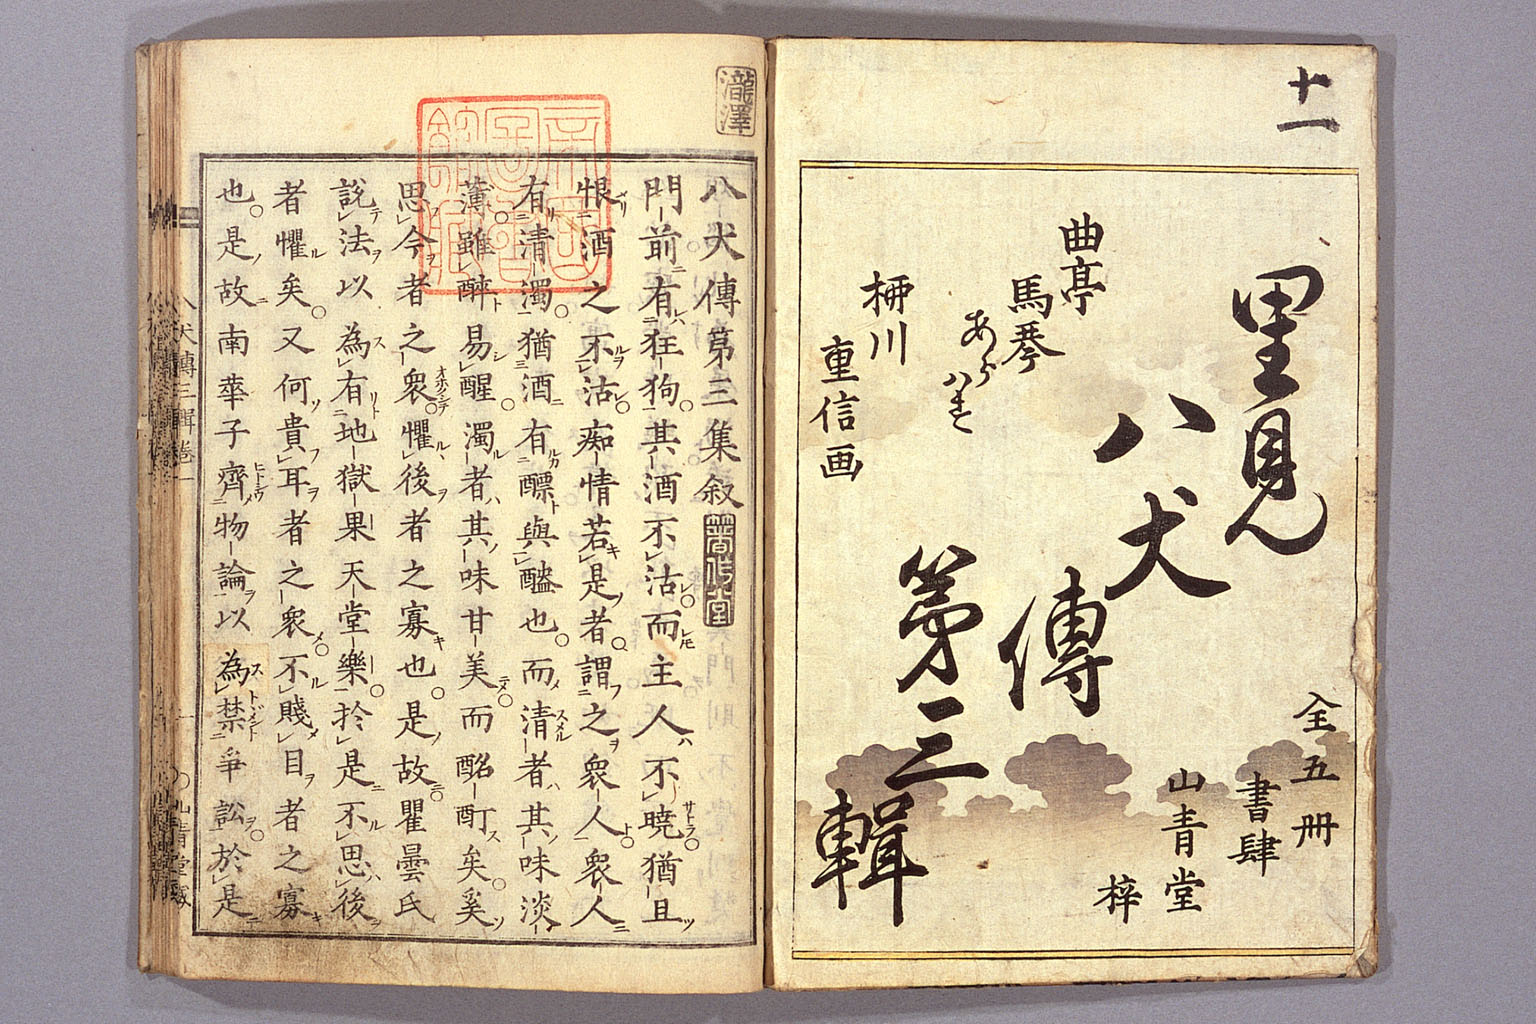 十一
里見
八犬
傳
第三
輯
曲亭
馬琴
あらはす
柳川
重信画
全五冊
書肆
山青堂
梓
瀧澤
八犬傳第三集叙
門前有狂狗其酒不沽而主人不暁猶且
恨酒之不沽痴情若是者謂之衆人衆人
有清濁猶酒有醥與醠也而清者其味淡
薄雖醉易醒濁者其味甘美而酩酊矣奚
思今者之衆懼後者之寡也是故瞿曇氏
説法以為有地獄果天堂樂於是不思後
者懼矣又何貴耳者之衆不賤目者之寡
也是故南華子齊物論以為禁爭訟於是
八犬傳三輯巻一
一
○山青堂藏